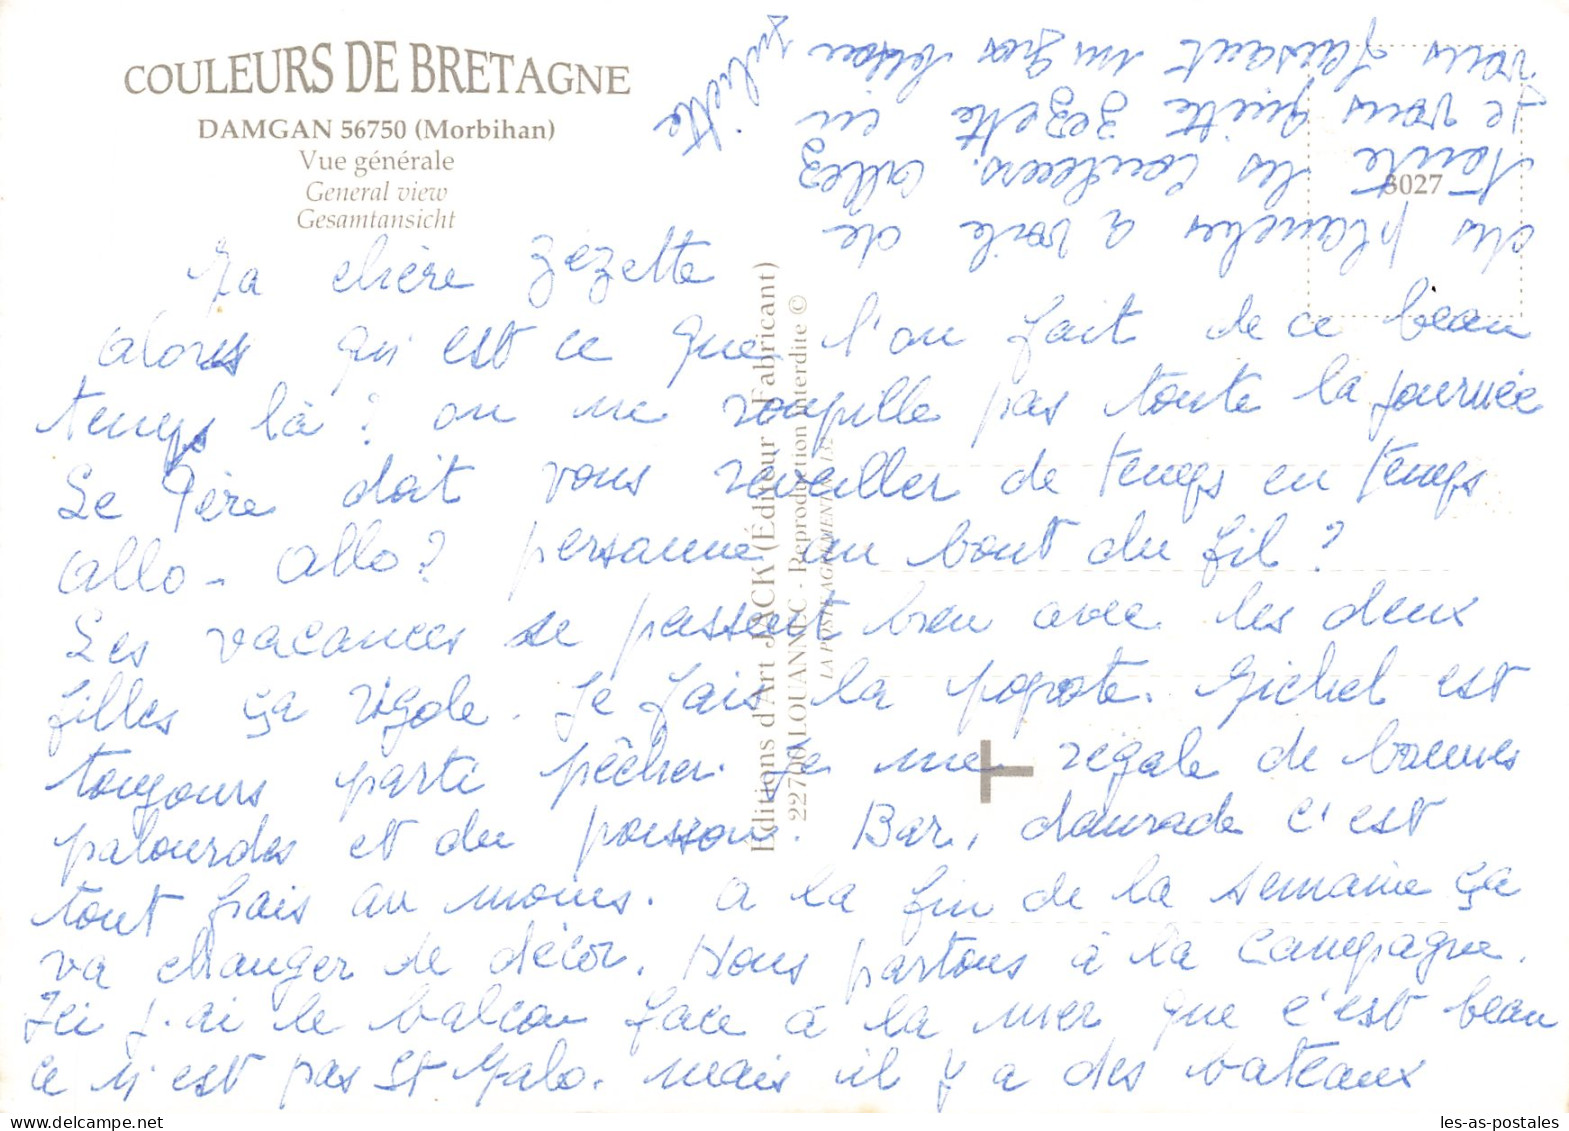 COULEURS DE BRETAGNE
DAMGAN 56750 (Morbihan)
Vue générale
General view
Gesamtansicht
3027
Éditions d'Art JACK (Éditeur - Fabricant)
22700 LOUANNEC - Reproduction interdite ©
LA POSTE AGREMENT N°
Ma chère Zézette
alors qu'est ce que l'on fait de ce beau
temps là ? on ne roupille pas toute la journée
Le Père doit vous reveiller de temps en temps
allo - allo ? personne au bout du fil ?
Les vacances se passent bien avec les deux
filles ça rigole. Je fais la popote. Michel est
toujours parti pêcher. Je me régale de bonnes
palourdes et du poisson. Bar, daurade c'est
tout frais au moins. a la fin de la semaine ça
va changer de décor. Nous partons à la campagne.
Ici j'ai le balcon face à la mer que c'est beau
ce n'est pas St Malo. mais il y a des bateaux
des planches a voile de
toute les couleurs. allez
Je vous quitte Zezette en
vous faisant un gros bisou
Juliette
les-as-postales